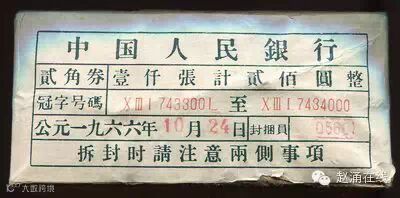 中国人民銀行
貳角券壹仟張計貳佰圓整
冠字号碼 XⅢI 7433001 至 XⅢI 7434000
公元一九六六年10月24日封捆員
拆封时請注意兩側事項
赵涌在线